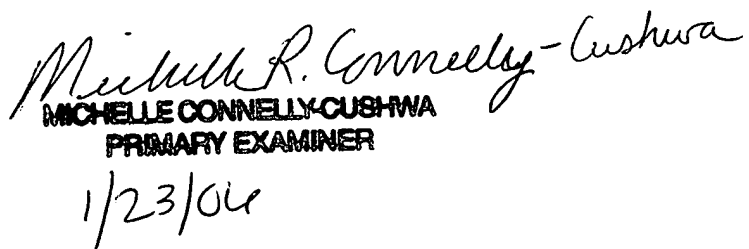 Michelle R. Connelly-Cushwa
MICHELLE CONNELLY-CUSHWA
PRIMARY EXAMINER
1/23/06